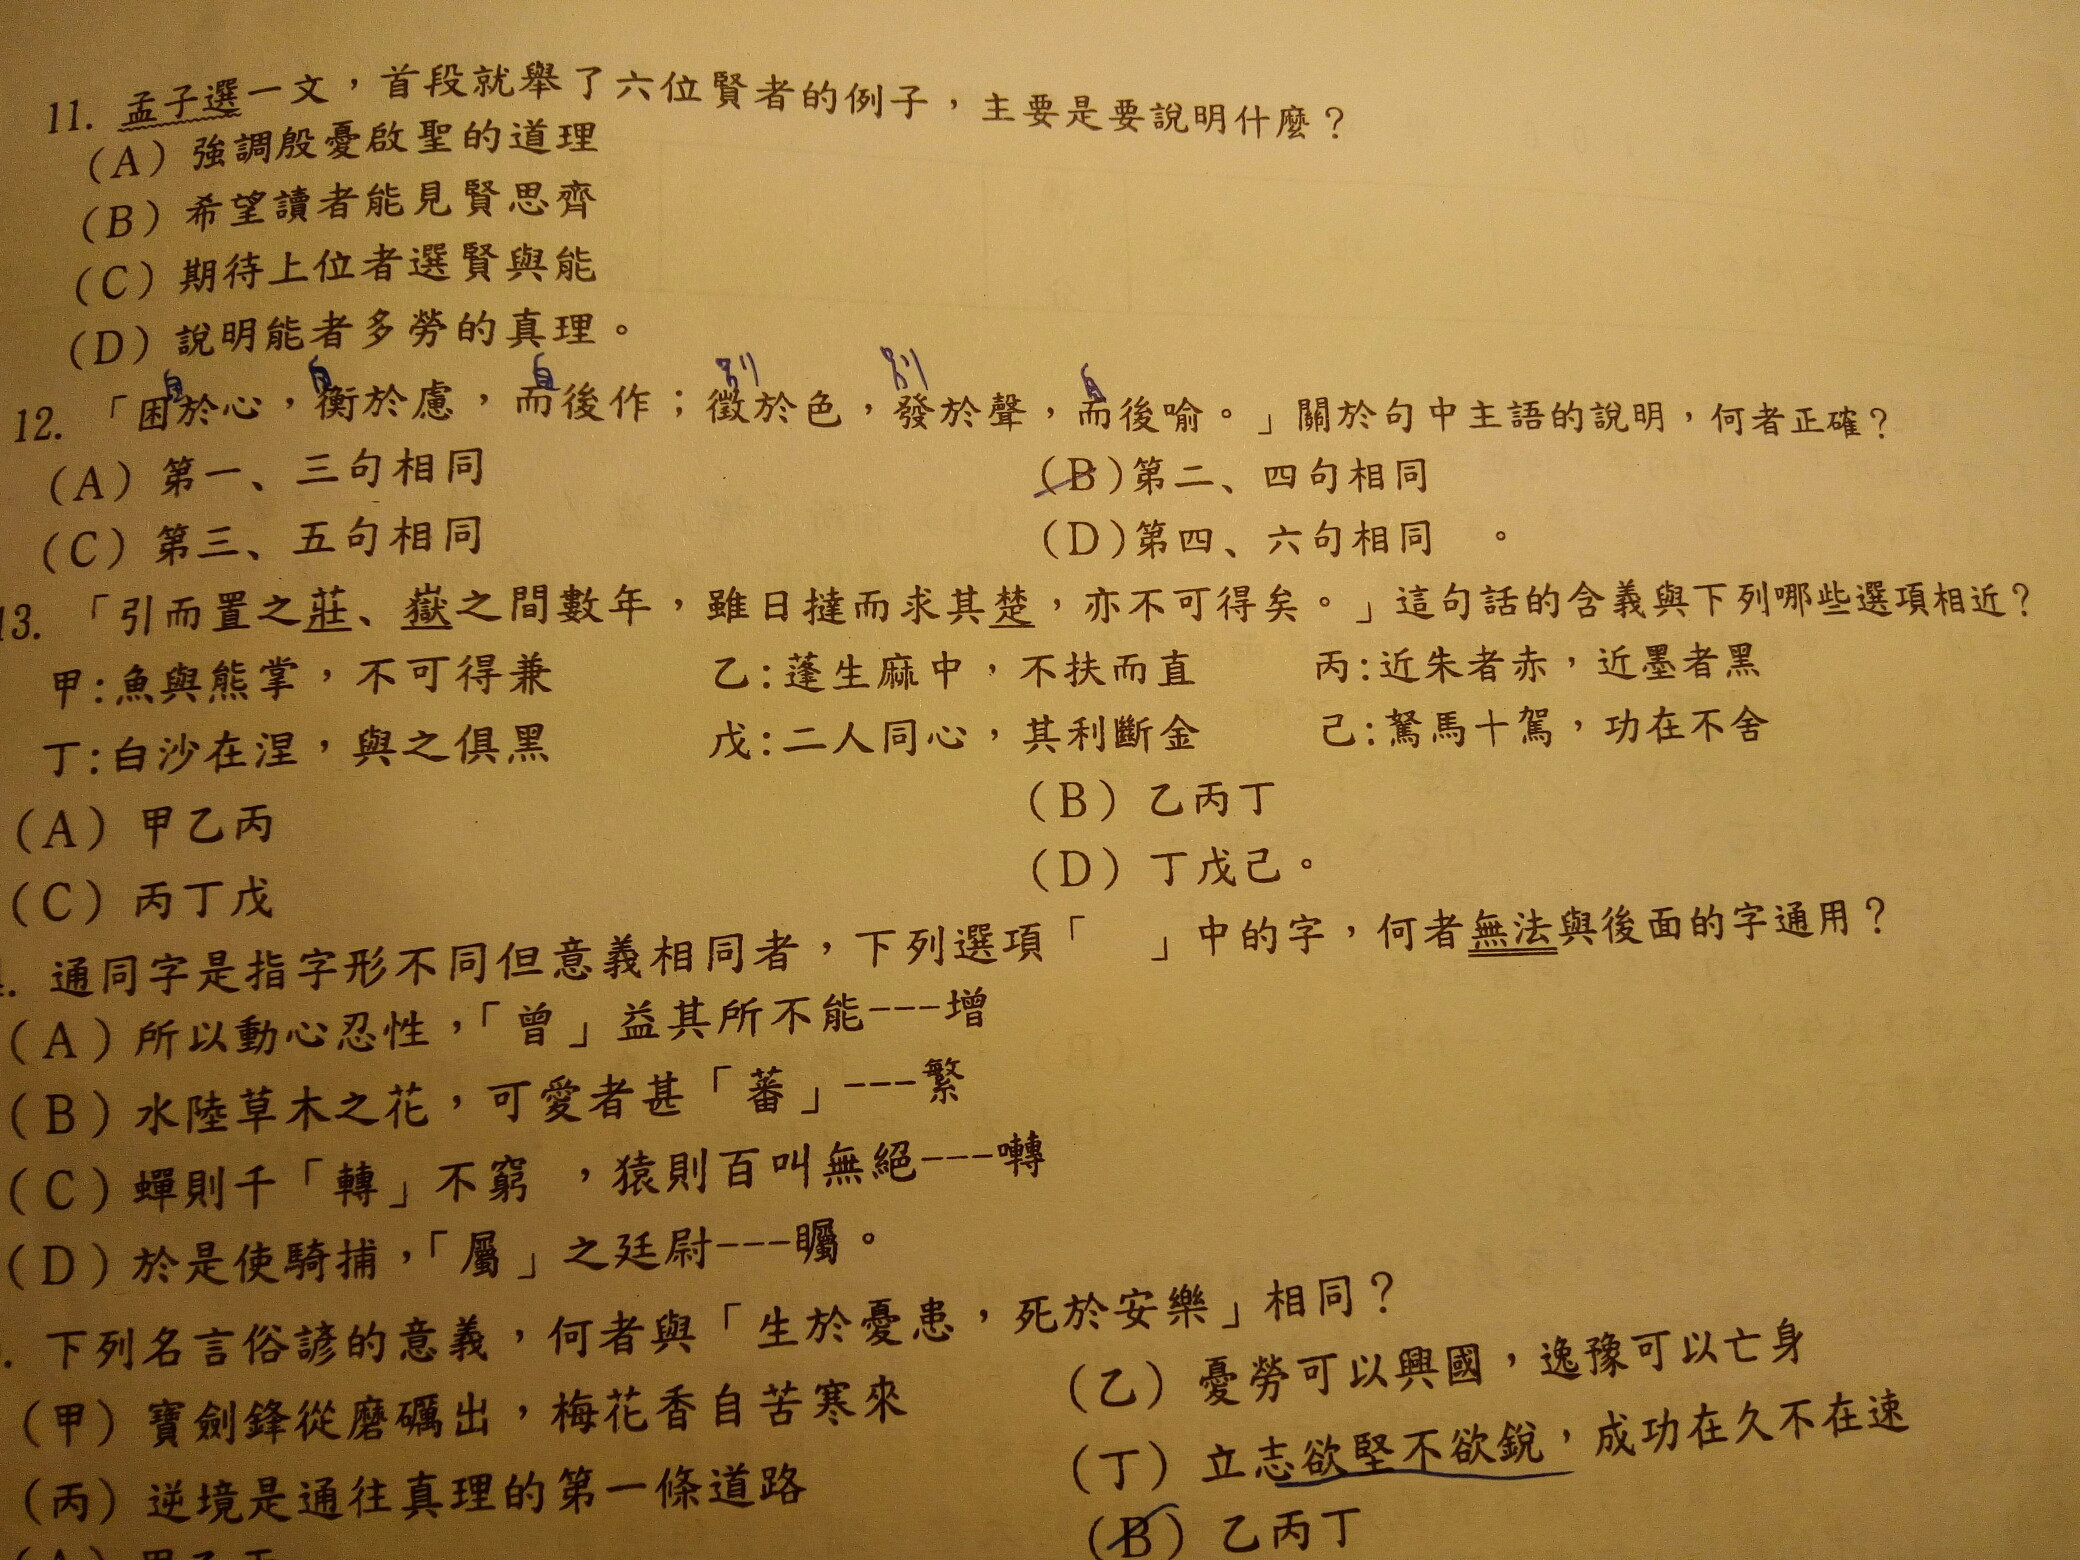 11. 孟子選一文，首段就舉了六位賢者的例子，主要是要說明什麼？
(A) 強調殷憂啟聖的道理
(B) 希望讀者能見賢思齊
(C) 期待上位者選賢與能
(D) 說明能者多勞的真理。
自 自 自 別 別 自
12. 「困於心，衡於慮，而後作；徵於色，發於聲，而後喻。」關於句中主語的說明，何者正確？
(A) 第一、三句相同 (B)第二、四句相同
(C) 第三、五句相同 (D)第四、六句相同 。
13. 「引而置之莊、嶽之間數年，雖日撻而求其楚，亦不可得矣。」這句話的含義與下列哪些選項相近？
甲:魚與熊掌，不可得兼 乙:蓬生麻中，不扶而直 丙:近朱者赤，近墨者黑
丁:白沙在涅，與之俱黑 戊:二人同心，其利斷金 己:駑馬十駕，功在不舍
(A) 甲乙丙 (B) 乙丙丁
(C) 丙丁戊 (D) 丁戊己。
. 通同字是指字形不同但意義相同者，下列選項「 」中的字，何者無法與後面的字通用？
(A) 所以動心忍性，「曾」益其所不能---增
(B) 水陸草木之花，可愛者甚「蕃」---繁
(C) 蟬則千「轉」不窮 ，猿則百叫無絕---囀
(D) 於是使騎捕，「屬」之廷尉---矚。
. 下列名言俗諺的意義，何者與「生於憂患，死於安樂」相同？
(甲) 寶劍鋒從磨礪出，梅花香自苦寒來 (乙) 憂勞可以興國，逸豫可以亡身
(丙) 逆境是通往真理的第一條道路 (丁) 立志欲堅不欲銳，成功在久不在速
(B) 乙丙丁